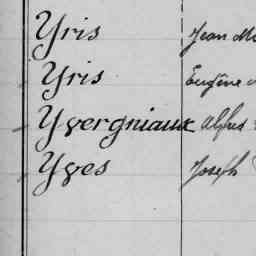 Yris Jean
Yris Eugène
Yvergniaux Alfred
Yves Joseph